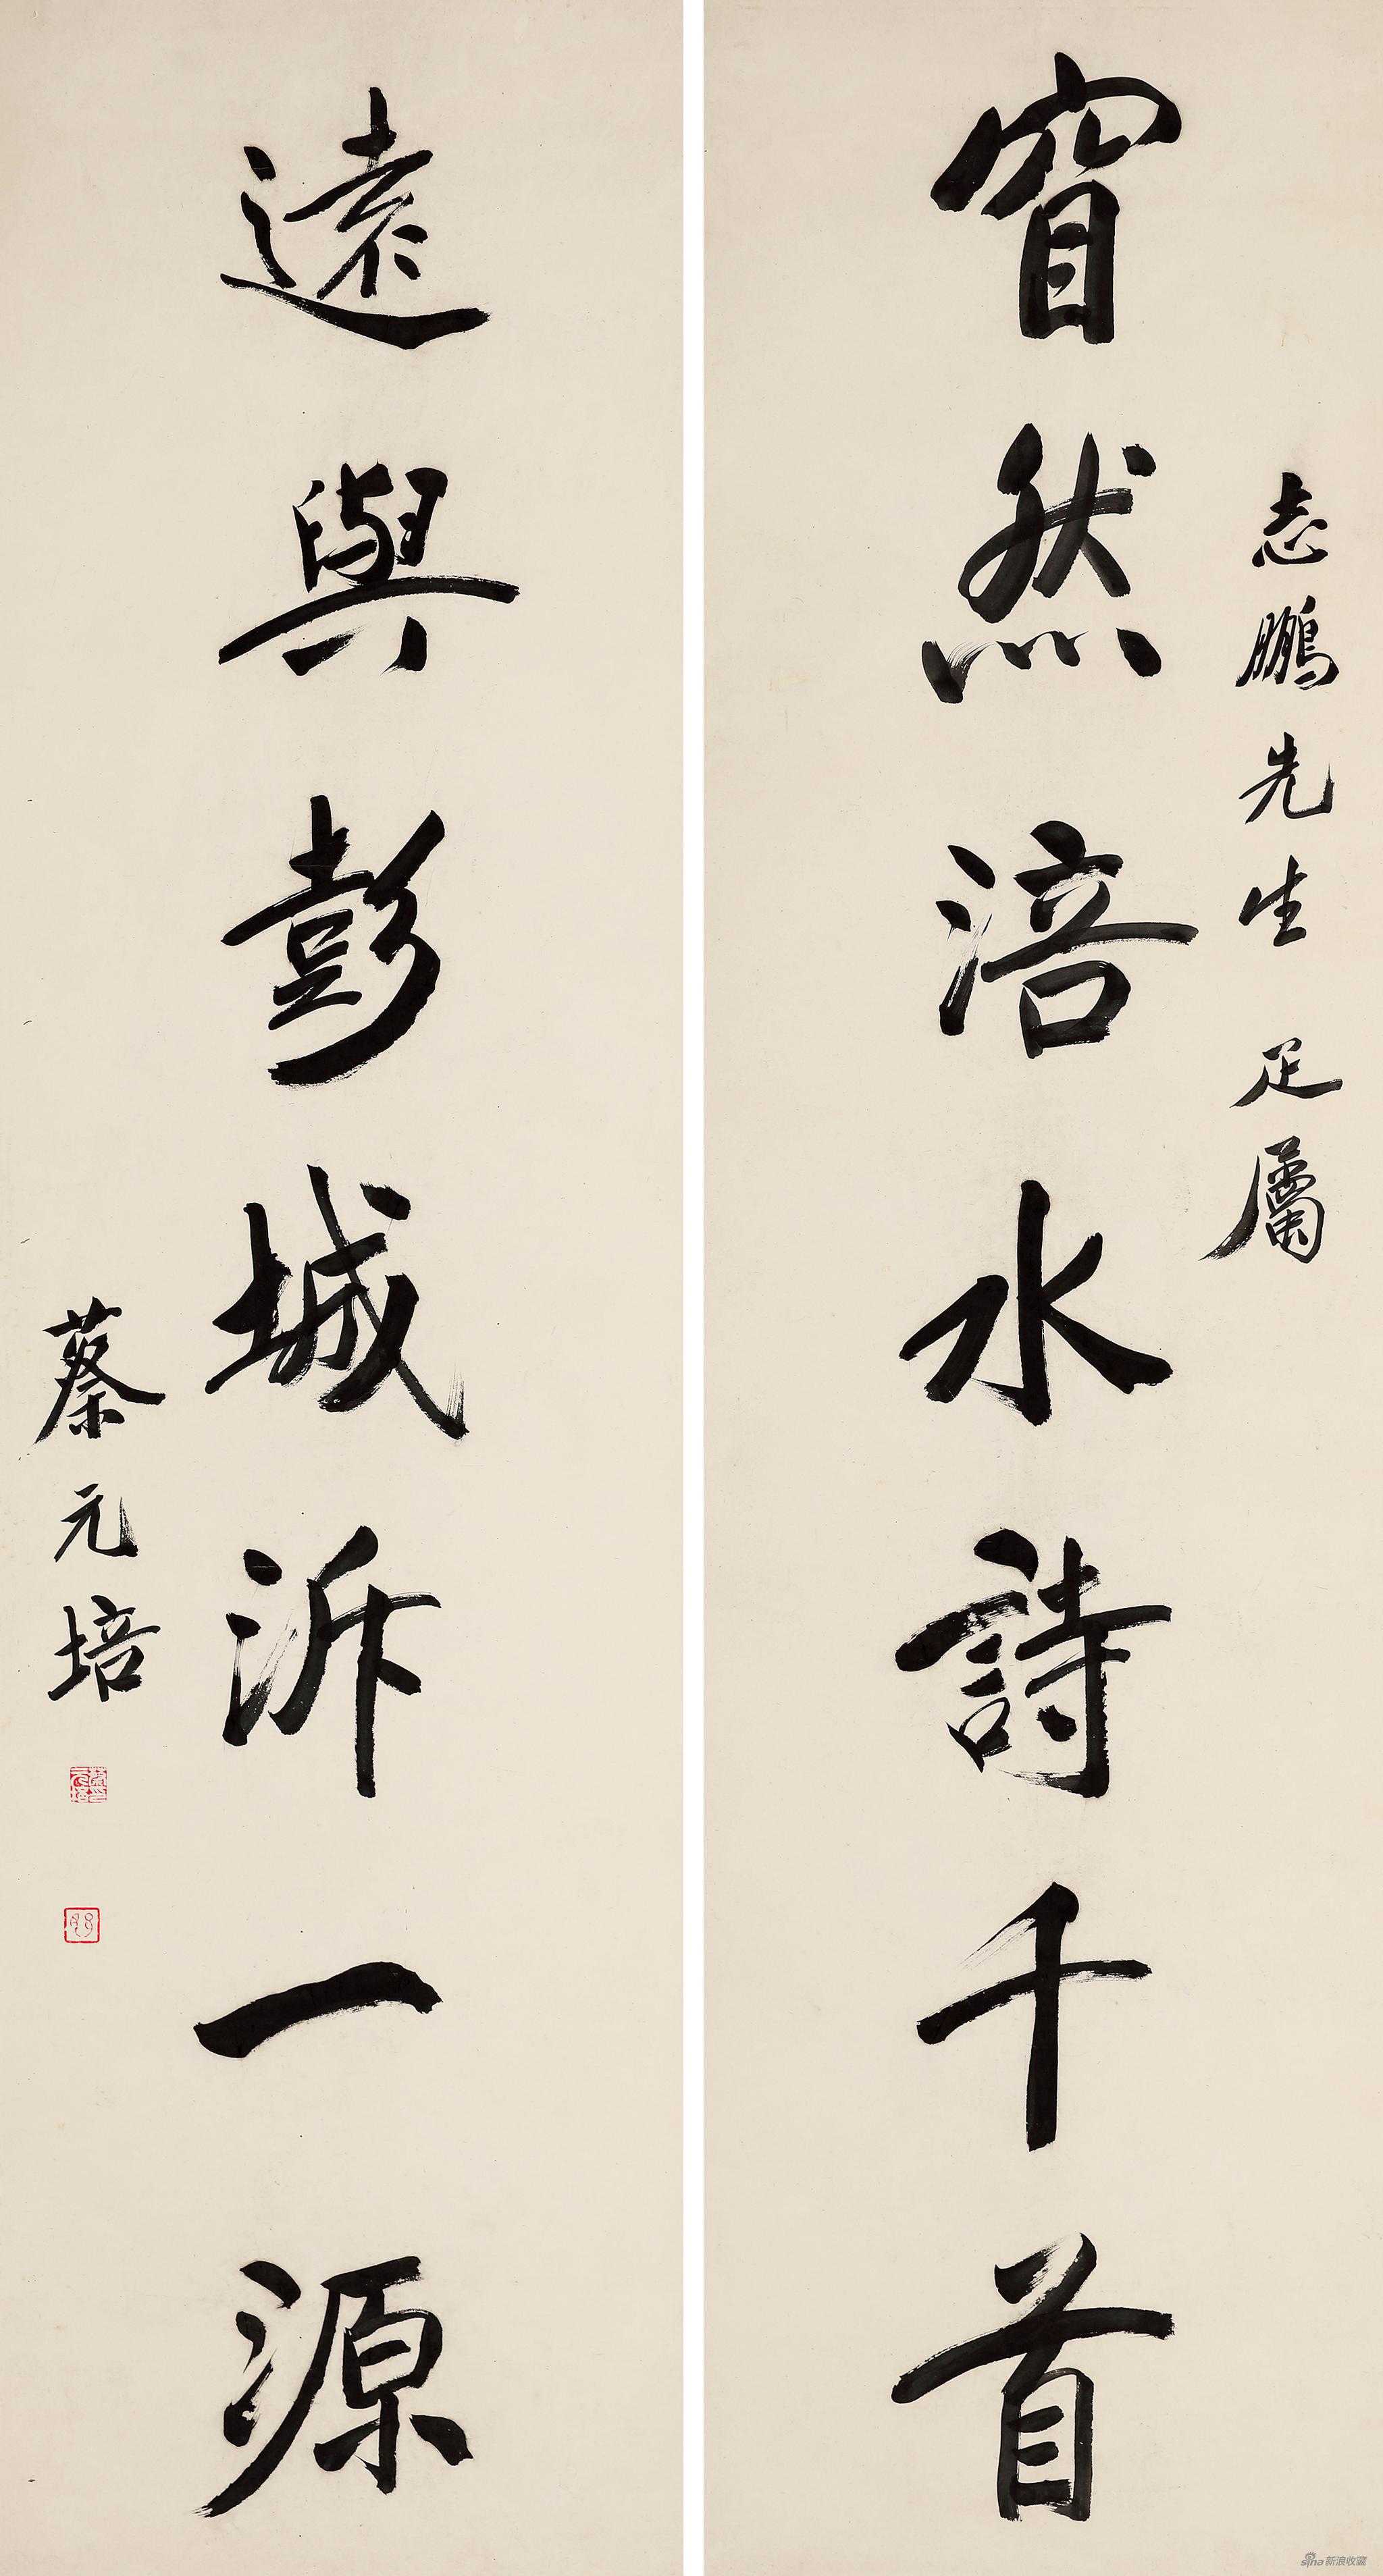 志鵬先生 疋屬
窅然涪水詩千首
遠與彭城泝一源
蔡元培
sina新浪收藏